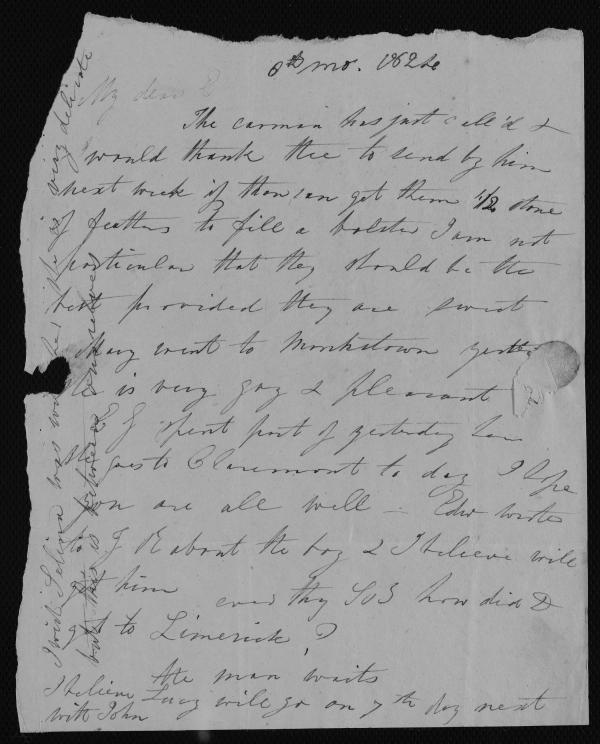 8th mo. 1824
My dear E
The carman has just call'd &
would thank thee to send by him
next week if thou can get them 1/2 stone
of feathers to fill a bolster I am not
particular that they should be the
best provided they are sweet
Mary went to Monkstown yester
is very gay & pleasant
E J spent part of yesterday here
goes to Claremont to day I hope
you are all well – Edw wrote
to J R about the boy & I believe will
him ever thy S S how did
get to Limerick ?
The man waits
I believe Lucy will go on 7th day next
with John
I wish Selina was with her she is very delicate
but this is between ourselves